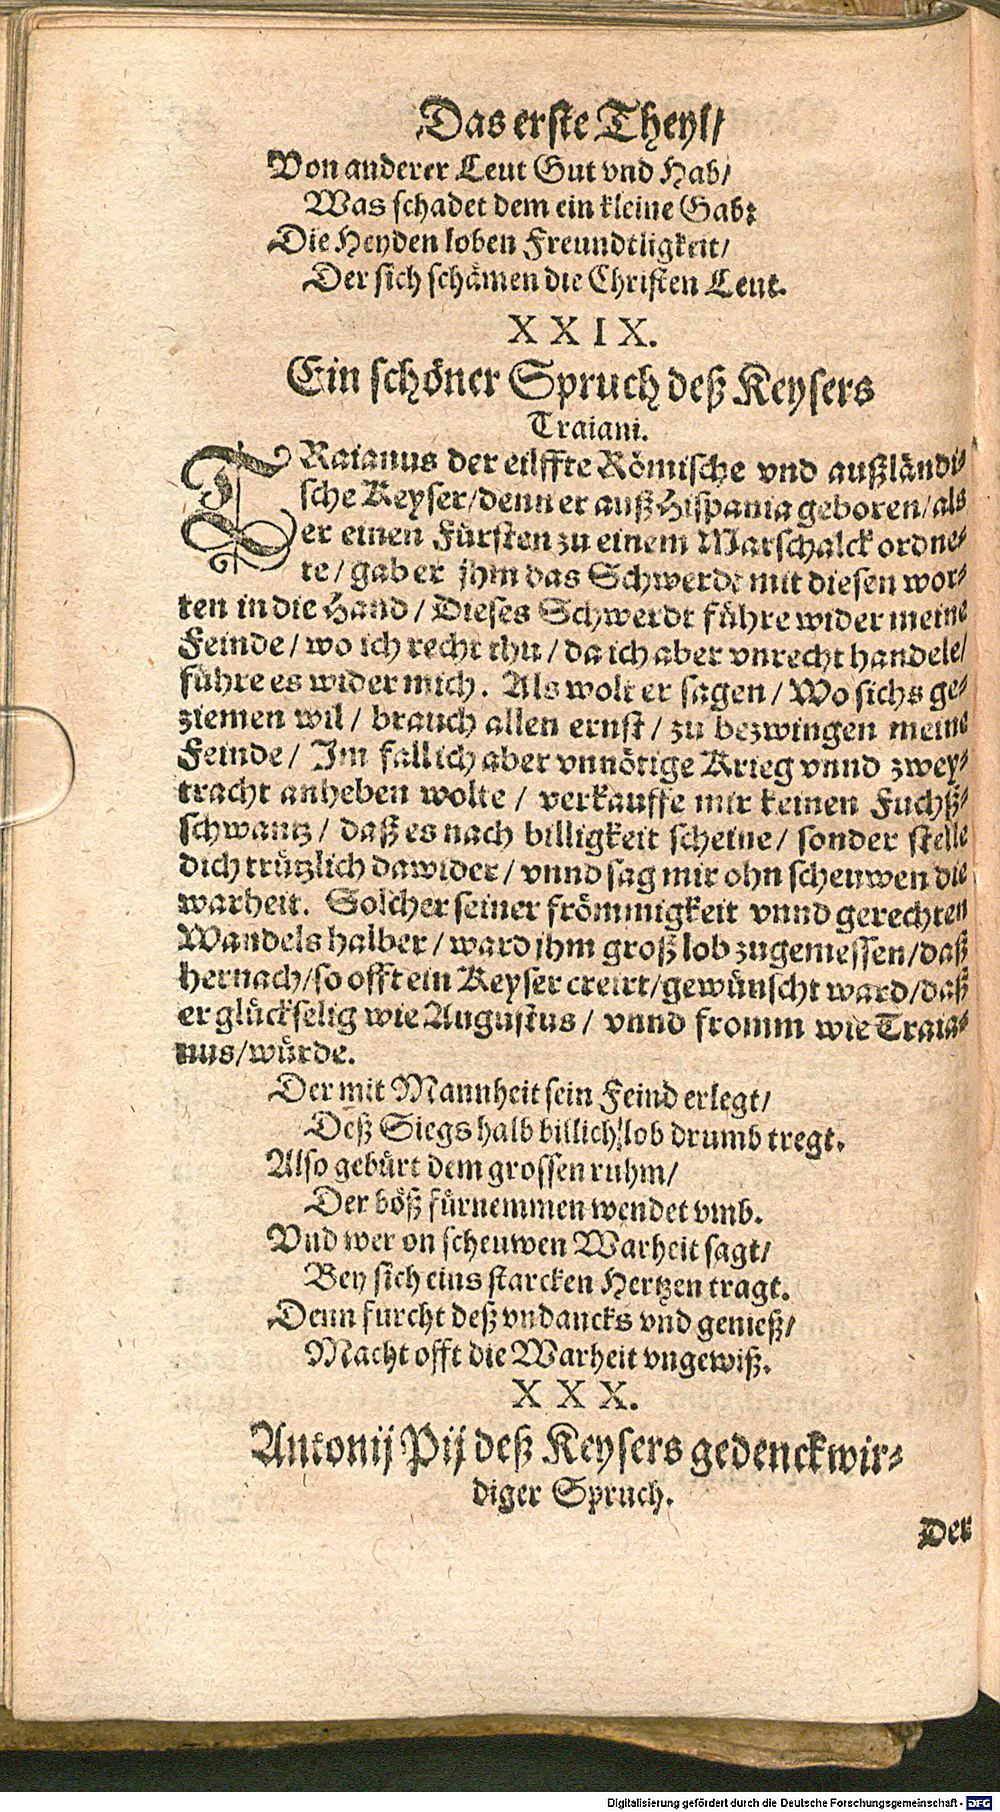 Das erste Theyl/
Von anderer Leut Gut vnd Hab/
Was schadet dem ein kleine Gab?
Die Heyden loben Freundtligkeit/
Der sich schämen die Christen Leut.
XXIX.
Ein schöner Spruch deß Keysers
Traiani.
TRaianus der eilffte Römische vnd außländi-
sche Keyser/denn er auß Hispania geboren/als
er einen Fürsten zu einem Marschalck ordne-
te/gab er jhm das Schwerdt mit diesen wor-
ten in die Hand/Dieses Schwerdt führe wider meine
Feinde/wo ich recht thu/da ich aber vnrecht handele/
führe es wider mich. Als wolt er sagen/Wo sichs ge-
ziemen wil/brauch allen ernst/zu bezwingen meine
Feinde/Im fall ich aber vnnötige Krieg vnnd zwey-
tracht anheben wolte/verkauffe mir keinen Fuchß-
schwantz/daß es nach billigkeit scheine/sonder stelle
dich trützlich dawider/vnnd sag mir ohn scheuwen die
warheit. Solcher seiner frömmigkeit vnnd gerechten
Wandels halber/ward jhm groß lob zugemessen/daß
hernach/so offt ein Keyser creirt/gewünscht ward/daß
er glückselig wie Augustus/vnnd fromm wie Traia-
nus/würde.
Der mit Mannheit sein Feind erlegt/
Deß Siegs halb billich lob drumb tregt.
Also gebürt dem grossen ruhm/
Der böß fürnemmen wendet vmb.
Vnd wer on scheuwen Warheit sagt/
Bey sich eins starcken Hertzen tragt.
Denn furcht deß vndancks vnd genieß/
Macht offt die Warheit vngewiß.
XXX.
Antonij Pij deß Keysers gedenckwir-
diger Spruch.
Der
Digitalisierung gefördert durch die Deutsche Forschungsgemeinschaft - DFG